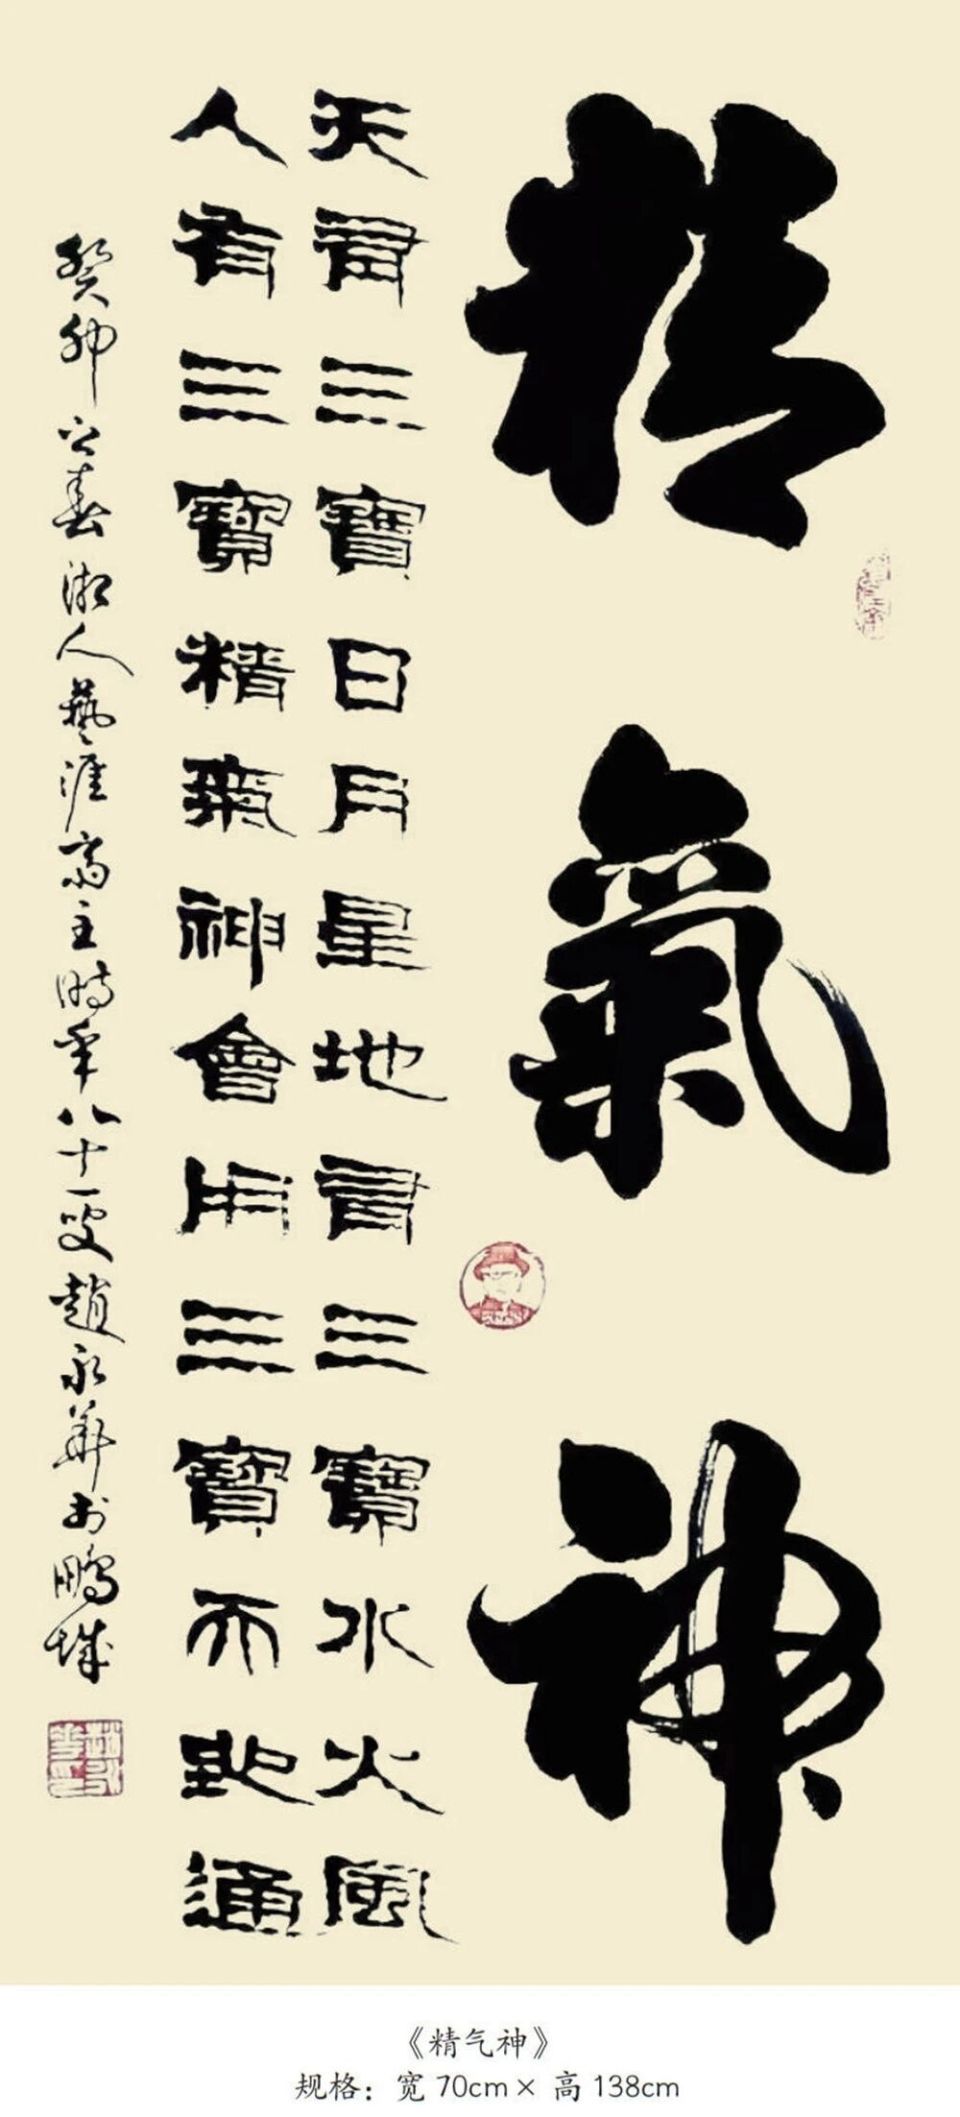 精氣神
天有三寶日月星地有三寶水火風
人有三寶精氣神會用三寶天地通
癸卯之春湘人藝涯齋主時年八十一叟趙永華书鵬城
《精气神》
规格：宽70cm×高138cm